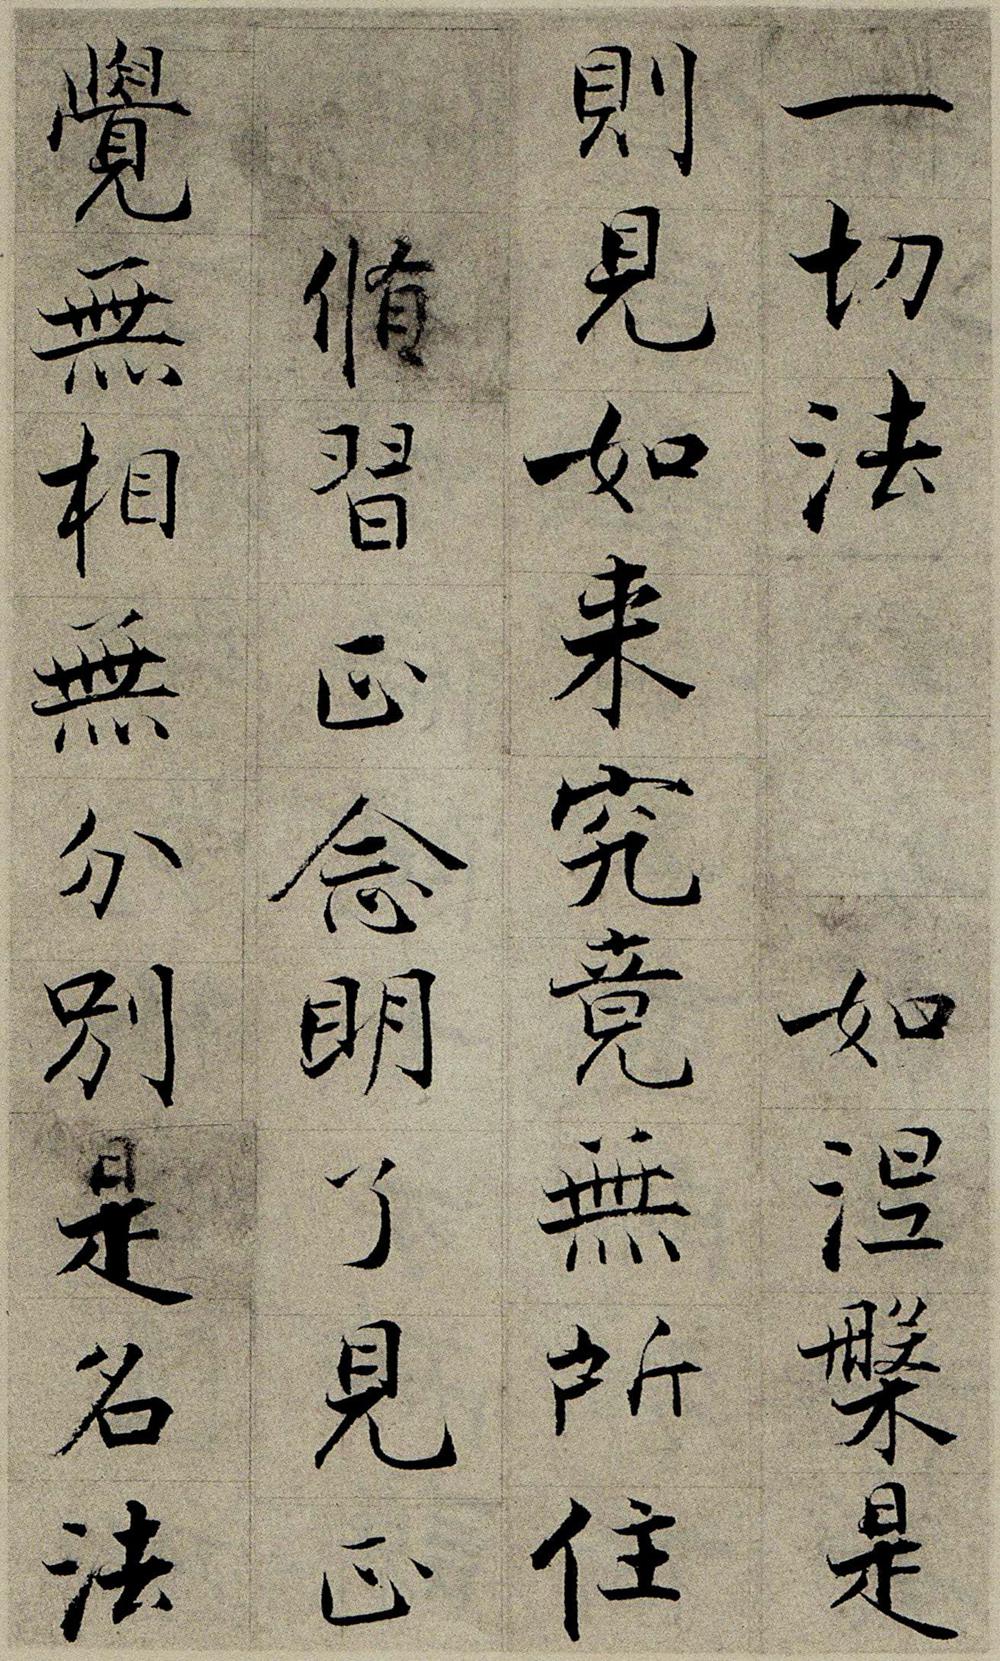 一切法　如涅槃是
則見如来究竟無所住
脩習正念明了見正
覺無相無分別是名法